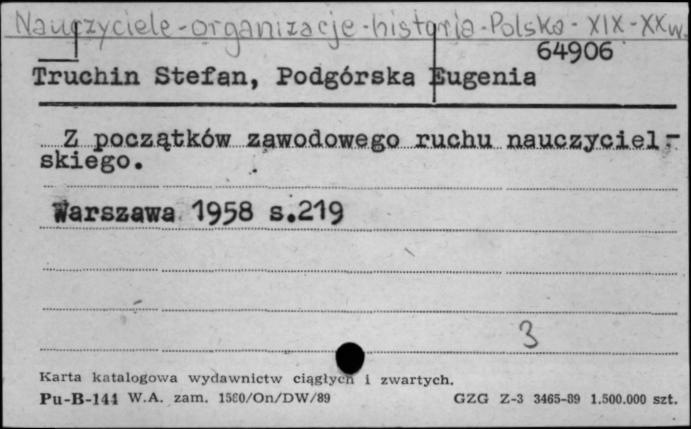 Nauczyciele-organizacje-historia-Polska-XIX-XXw.
64906
Truchin Stefan, Podgórska Eugenia
Z początków zawodowego ruchu nauczyciel-
skiego.
Warszawa 1958 s.219
3
Karta katalogowa wydawnictw ciągłych i zwartych.
Pu-B-141 W.A. zam. 1560/On/DW/89 GZG Z-3 3465-89 1.500.000 szt.